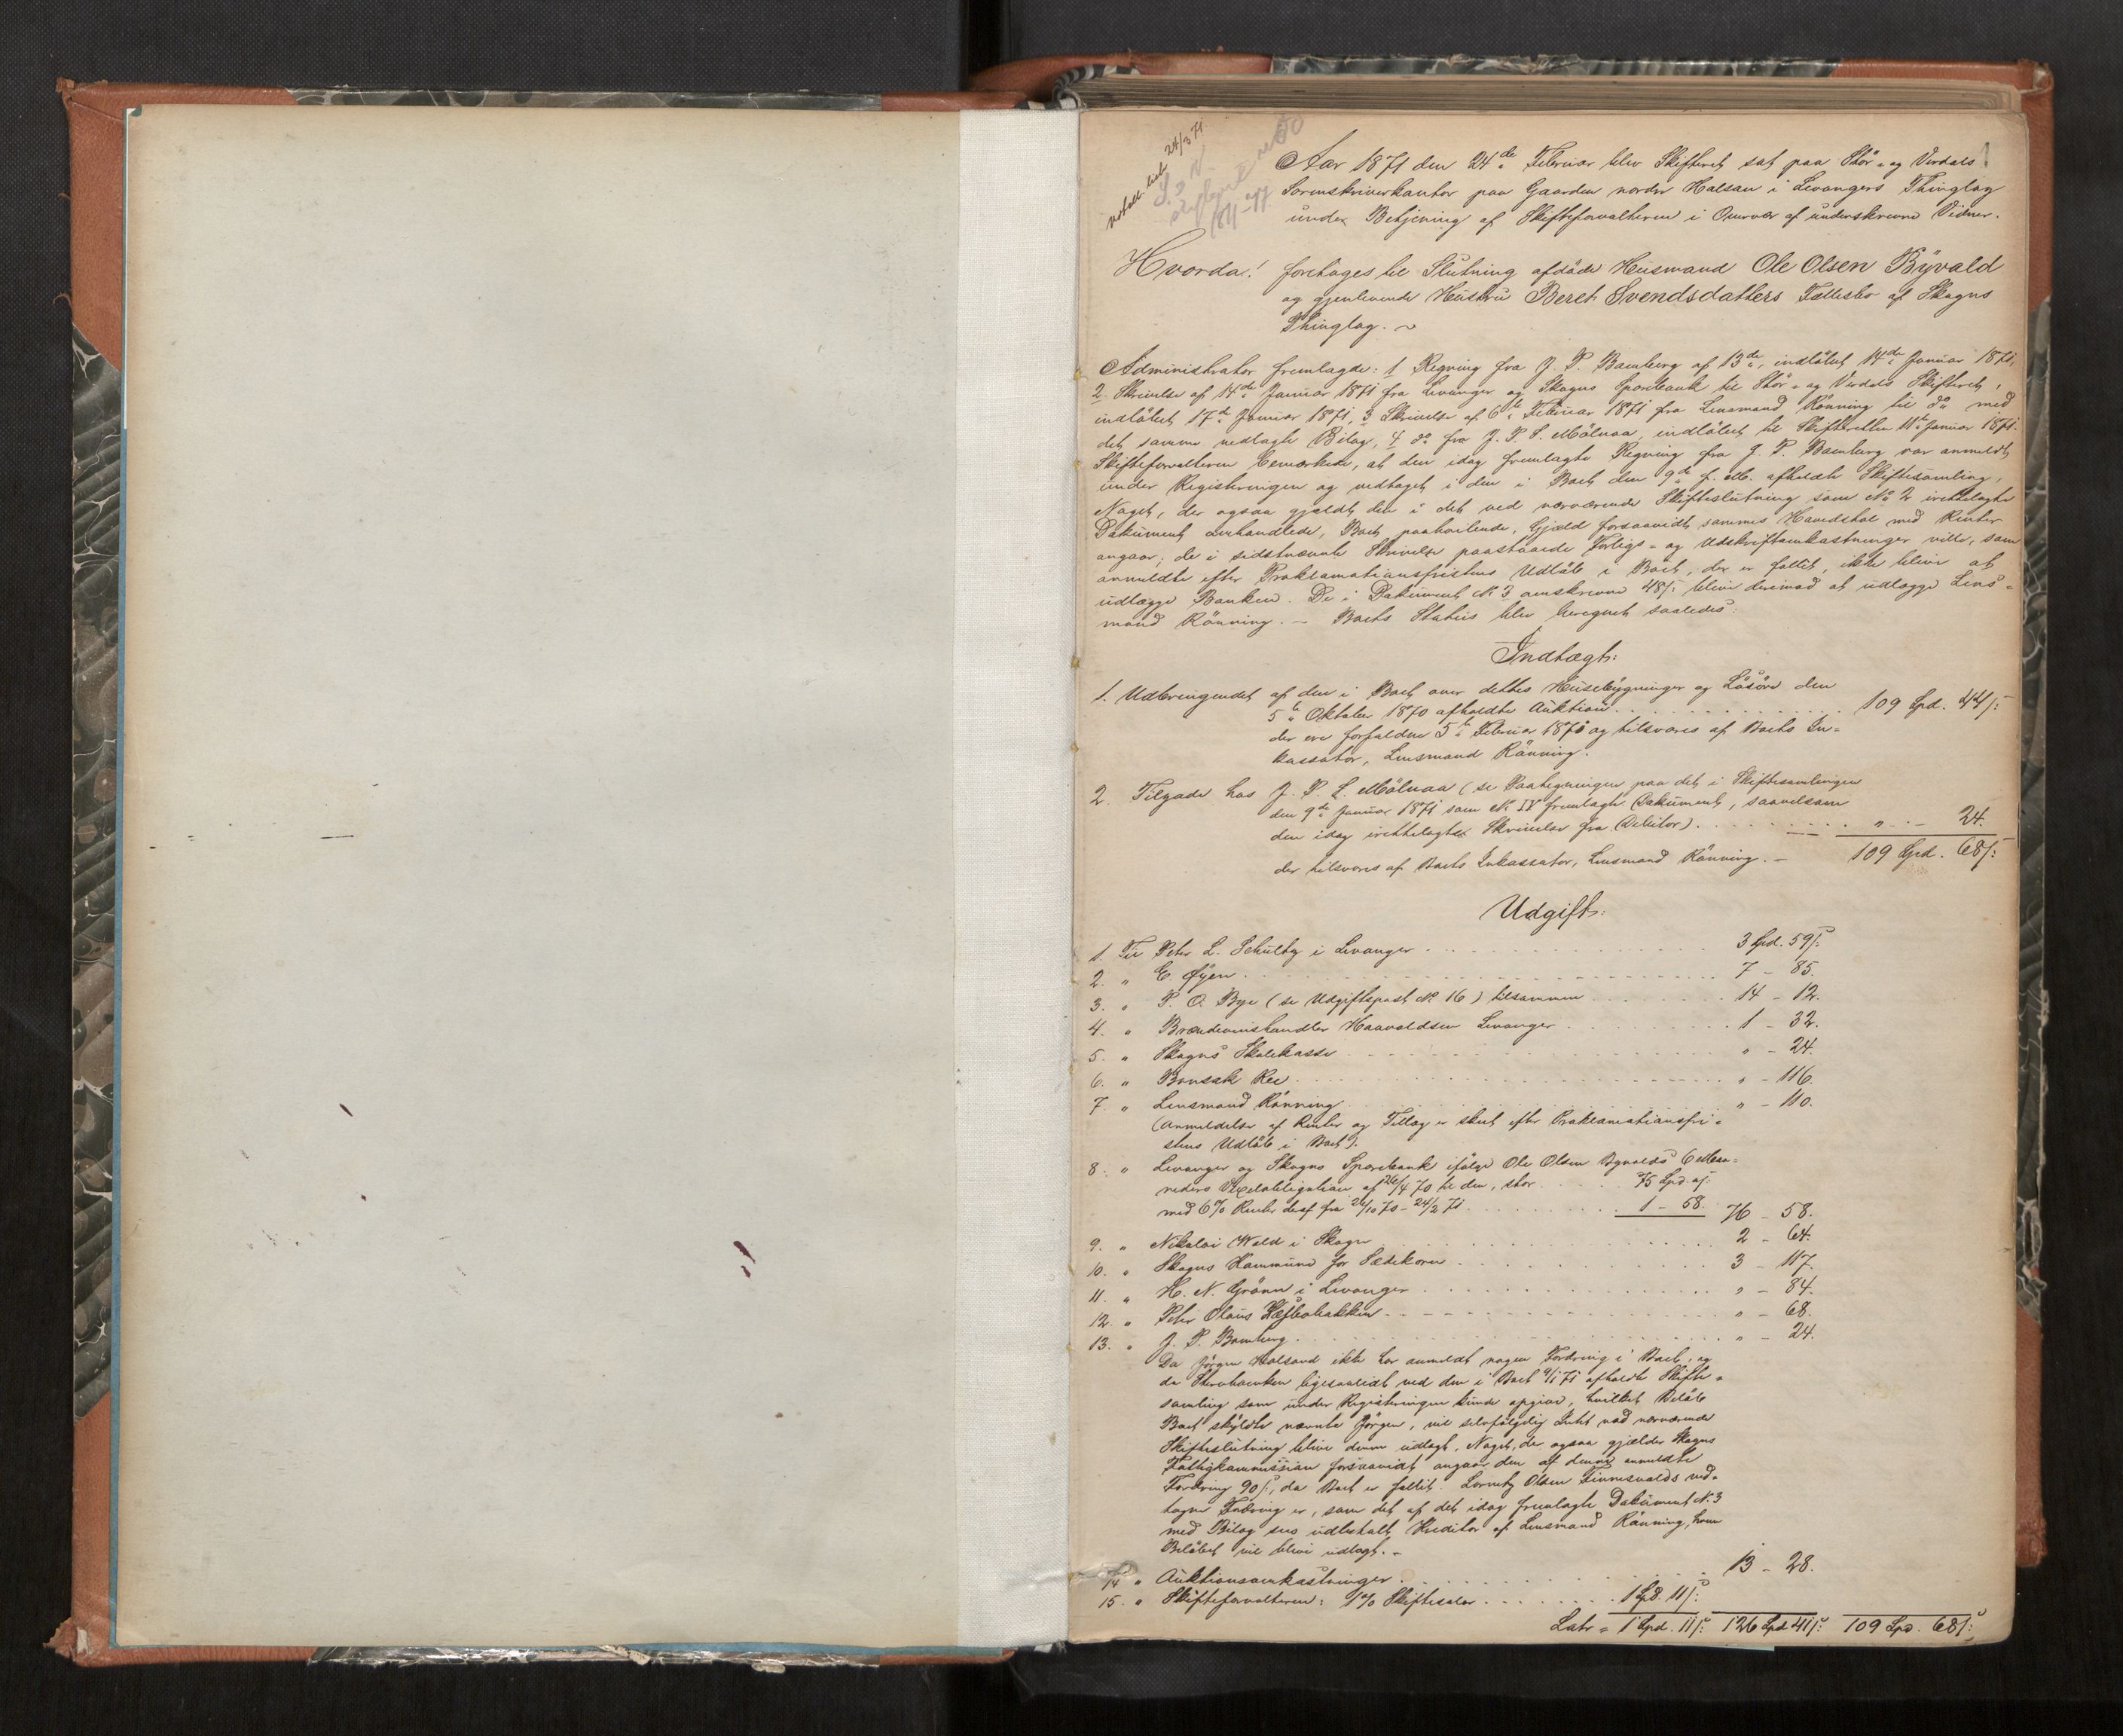 notalt. lirt 24/3 71.
Aar 1871 den 24de Februar blev Skifteret sat paa Stør- og Verdals
Sorenskriverkontor paa Gaarden nordre Halsan i Levangers Thinglag
under Betjening af Skifteforvalteren i Overvær af underskrevne Vidner.
Hvorda! foretoges til Slutning afdøde Husmand Ole Olsen Byvald
og gjenlevende Hustru Beret Svendsdatters Fællesbo af Skogns
Thinglag. ~
Administrator fremlagde: 1 Regning fra J. P. Bamberg af 13de, indløbet 14de Januar 1871,
2 Skrivelse af 14de Januar 1871 fra Levanger og Skogns Sparebank til Stør- og Verdals Skifteret,
indløbet 17de Januar 1871, 3 Skrivelse af 6te Februar 1871 fra Lensmand Rönning til do med
det samme vedlagte Bilag, 4 do fra J. P. S. Mölnaa, indløbet til Skifteretten 11te Januar 1871.
Skifteforvalteren bemærkede, at den idag fremlagte Regning fra J. P. Bamberg var anmeldt
under Registreringen og vedtaget i den i Boet den 9de f. M. afholdte Skiftesamling,
Noget, der ogsaa gjaldt den i det ved nærværende Skifteslutning som No 2 irettelagte
Dokument omhandlede, Boet paahvilende, Gjæld forsaavidt sammes Hovedstol med Renter
angaar; de i sidstnævnte Skrivelse paastaaede Forligs- og Udskriftsomkostninger ville, som
anmeldte efter Proklamationsfristens Udløb i Boet, der er fallit, ikke blive at
udlægge Banken. De i Dokument No 3 omskrevne 48 s: blive derimod at udlægge Lens-
mand Rönning. – Boets Status blev beregnet saaledes:
Indtægt:
1. Udbringendet af den i Boet over dettes Husebygninger og Løsøre den
5te Oktober 1870 afholdte Auktion . . . 109 Spd. 44 s:
der ere forfaldne 5te Februar 1871 og tilsvares af Boets In-
kassator, Lensmand Rönning.
2. Tilgode hos J. P. S. Mölnaa (se Paategningen paa det i Skiftesamlingen
den 9de Januar 1871 som No IV fremlagte Dokument, saavelsom
den idag irettelagte Skrivelse fra Debitor) . . . " - 24.
der tilsvares af Boets Inkassator, Lensmand Rönning. – 109 Spd. 68 s:
Udgift:
1. Til Peter L. Schultz i Levanger . . . 3 Spd. 59 s:
2. " E. Øyen . . . 7 - 85.
3. " P. O. Bye (se Udgiftspost No 16) tilsammen . . . 14 - 12.
4. " Brændevinshandler Haavaldsen Levanger . . . 1 - 32.
5. " Skogns Skolekasse . . . " - 24.
6. " Bonsak Ree . . . " - 116.
7. " Lensmand Rönning . . . " - 110.
(Anmeldelse af Renter og Tillæg er skeet efter Proklamationsfri-
stens Udløb i Boet).
8. " Levanger og Skogns Sparebank ifølge Ole Olsen Byvalds 6 Maa-
neders Vexelobligation af 26/4 70 til den, stor . . . 75 Spd. s:
med 6% Renter deraf fra 26/10 70 - 24/2 71 . . . 1 - 58. 76 - 58.
9. " Nikolai Wold i Skogn . . . 2 - 64.
10. " Skogns Kommune for Sædekorn . . . 3 - 117.
11. " H. N. Grönn i Levanger . . . " - 84.
12. " Peter Olaus . . . " - 68.
13. " J. P. Bamberg . . . " - 24.
Da Jörgen Halsand ikke har anmeldt nogen Fordring i Boet, og
da Stervboenken ligesaalidt ved den i Boet 9/1 71 afholdte Skifte-
samling som under Registreringen kunde opgive, hvilket Beløb
Boet skyldte nævnte Jörgen, vil selvfølgelig Intet ved nærværende
Skifteslutning blive denne udlagt, Noget, der ogsaa gjælder Skogns
Fattigkommission forsaavidt angaar den af denne anmeldte
Fordring 90 s, da Boet er fallit. Lorentz Olsen Finnesvalds ved-
tagne Fordring er, som det af det idag fremlagte Dokument No 3
med Bilag sees udbetalt Kreditor af Lensmand Rönning, hvem
Beløbet vil blive udlagt. –
14 " Auktionsomkostninger . . . 13 - 28.
15. " Skifteforvalteren: 1% Skiftesalær . . . 1 Spd. 11 s:
Latr = 1 Spd. 11 s: 126 Spd 41 s: 109 Spd. 68 s: